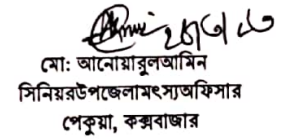 মো: আনোয়ারুলআমিন
সিনিয়রউপজেলামৎস্যঅফিসার
পেকুয়া, কক্সবাজার